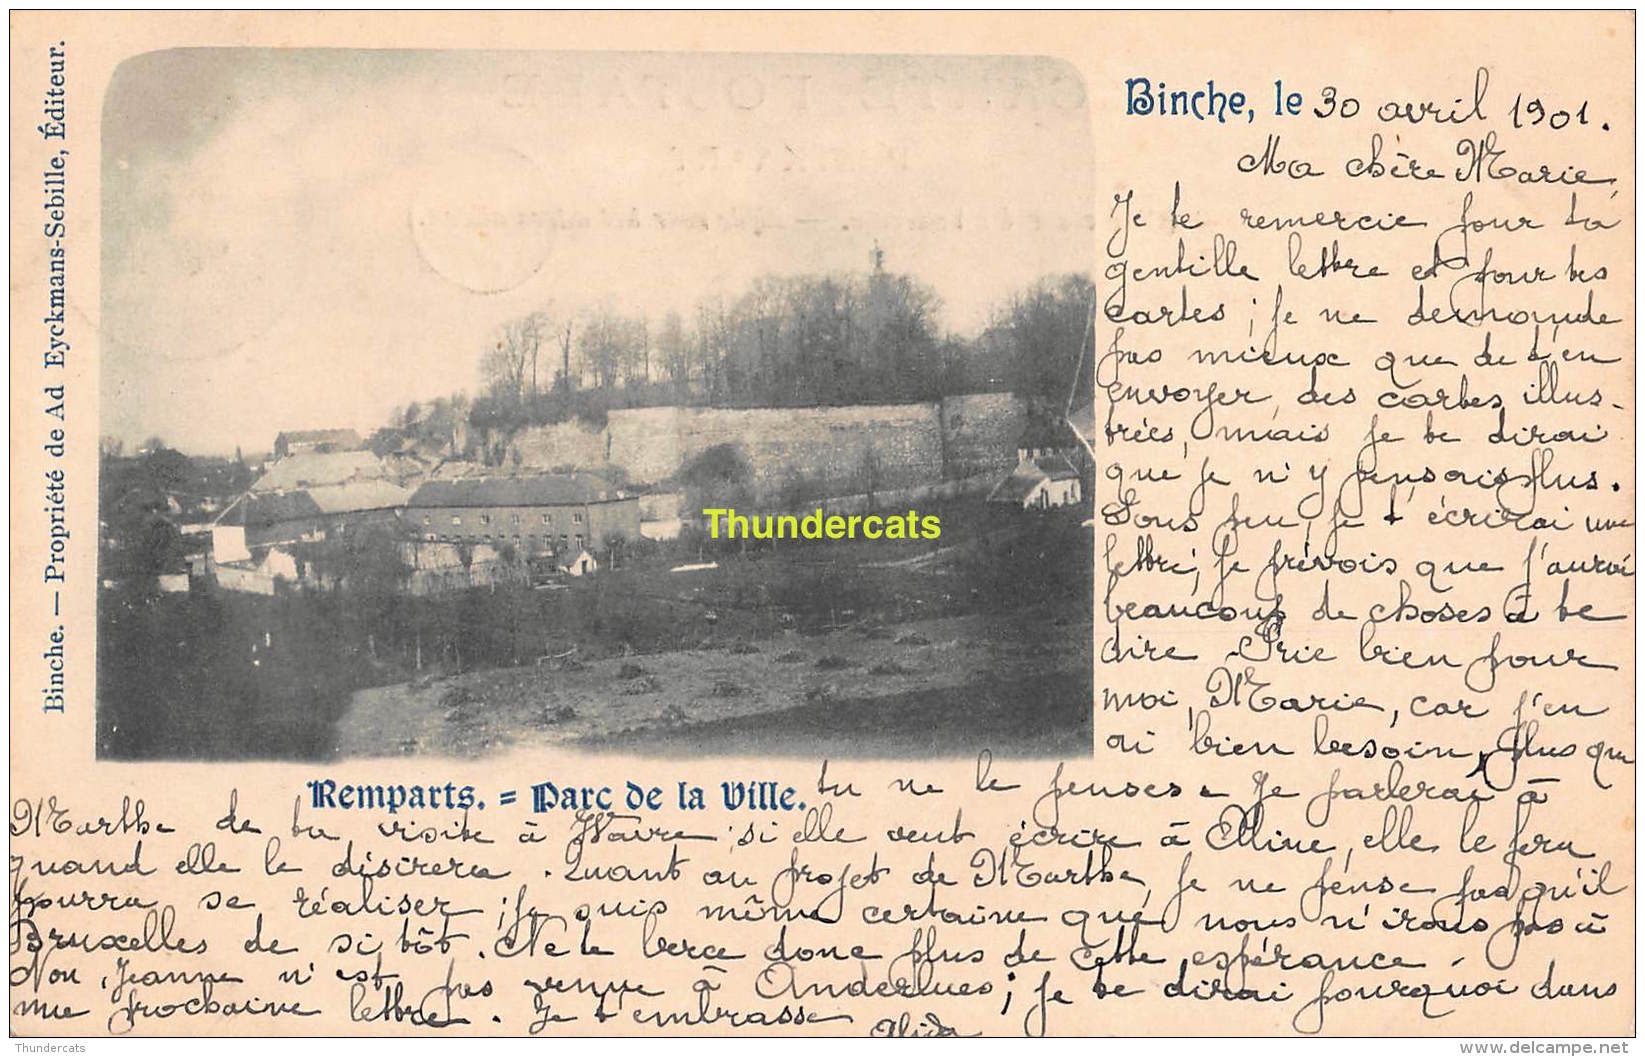 Binche. — Propriété de Ad Eyckmans-Sebille, Éditeur.
Binche, le 30 avril 1901.
Ma chère Marie,
Je te remercie pour ta
gentille lettre et pour tes
cartes ; je ne demande
pas mieux que de t'en
envoyer des cartes illus-
trées, mais je te dirai
que je n'y pensais plus.
Sous peu, je t'écrirai une
lettre ; je prévois que j'aurai
beaucoup de choses à te
dire. Prie bien pour
moi, Marie, car j'en
ai bien besoin, plus que
Remparts. = Parc de la Ville.
tu ne le penses. Je parlerai à
Marthe de ta visite à Wavre ; si elle veut écrire à Aline, elle le fera
quand elle le désirera. Quant au projet de Marthe, je ne pense pas qu'il
pourra se réaliser ; je suis même certaine que nous n'irons pas à
Bruxelles de si tôt. Ne te berce donc plus de cette espérance.
Non, Jeanne n'est pas venue à Anderlues ; je te dirai pourquoi dans
ma prochaine lettre. Je t'embrasse
Alida
Thundercats
Thundercats
delcampe.net